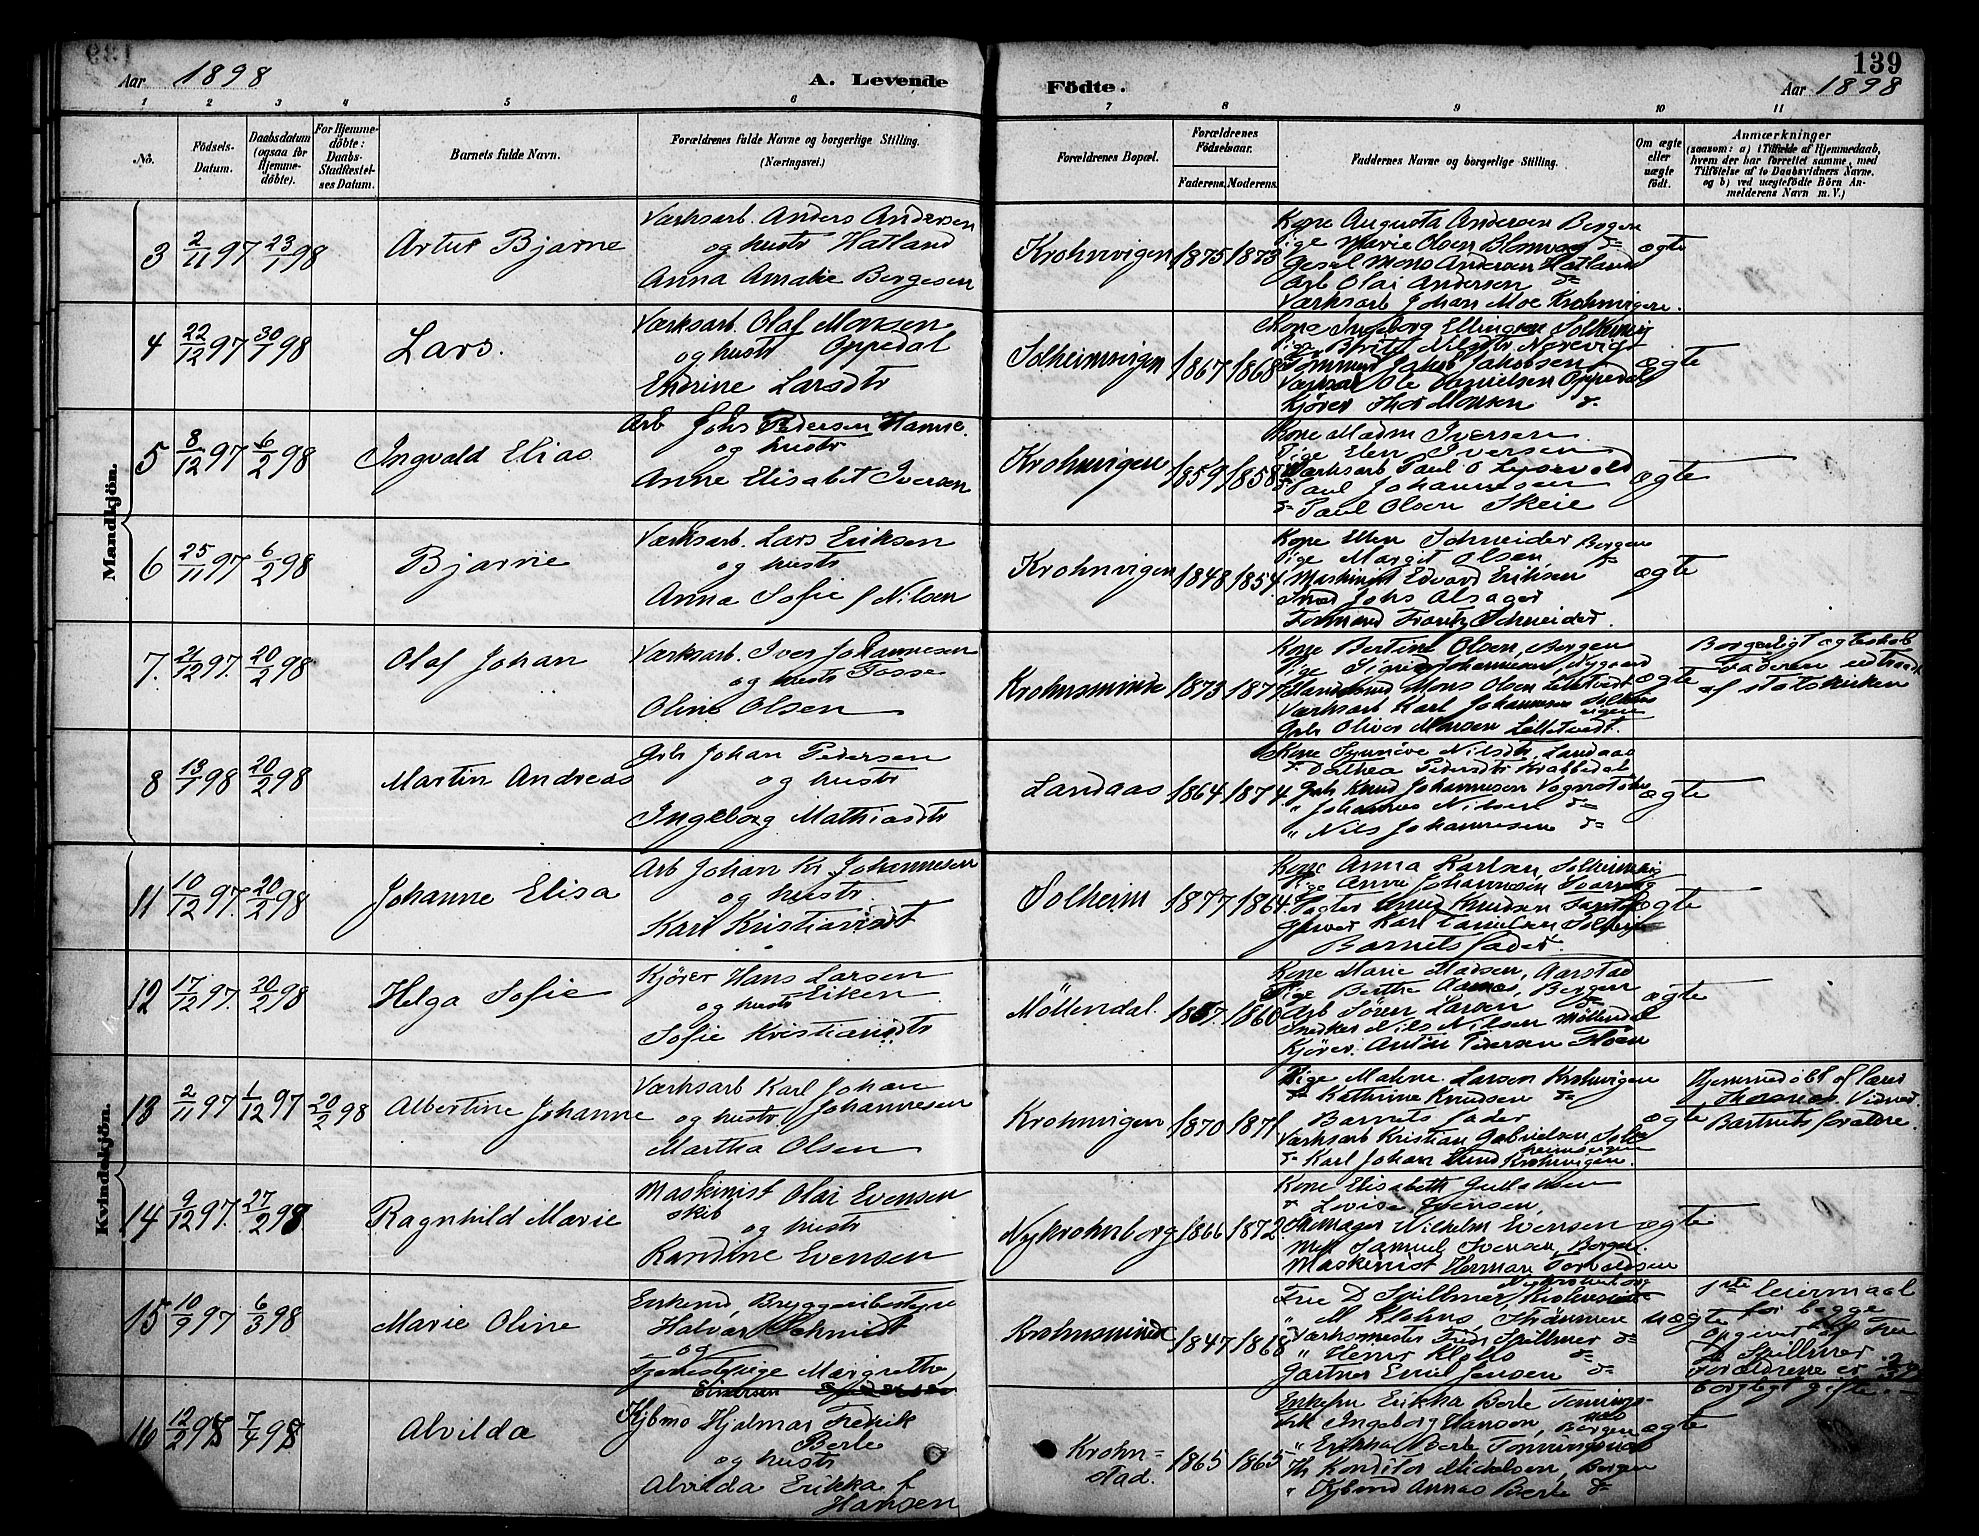 139
Aar 1898
A. Levende
Födte.
Aar 1898
1 2 3 4 5 6 7 8 9 10 11
No.
Födsels-Datum.
Daabsdatum (ogsaa for Hjemme-döbte).
For Hjemme-döbte: Daabs-Stadfæstel-ses Datum.
Barnets fulde Navn.
Forældrenes fulde Navne og borgerlige Stilling. (Næringsvei.)
Forældrenes Bopæl.
Forældrenes Födselsaar.
Faderens. Moderens.
Faddernes Navne og borgerlige Stilling.
Om ægte eller uægte födt.
Anmærkninger
(saasom: a) i Tilfælde af Hjemmedaab, hvem der har forrettet samme, med Tilföielse af to Daabsvidners Navne, og b) ved uægtefödte Börn An-melderens Navn m. V.)
Mandkjön.
3 2/11 97 23/1 98 Artur Bjarne
Værksarb. Anders Andersen
og hustr Hatland
Anna Amalie Børgesen
Krohnvigen 1875 1873
Kone Augusta Andersen Bergen
Pige Marie Olsen
Mons Andersen Hatland
Arb Olai Andersen do
Værksarb Johan Moe Krohnvigen.
ægte
4 22/12 97 30/1 98 Lars.
Værksarb. Olaf Monsen
og hustr Oppedal
Larsdtr
Solheimsvigen 1867 1868
Kone Ingeborg Ellingsen
Pige
Jakob Jakobsen
Ole Danielsen Oppedal
Kjører Thor Monsen do
ægte
5 8/12 97 6/2 98 Ingvald Elias
Arb Johs Pedersen
og hustr
Anne Elisabet Iversen
Krohnvigen 1859 1858
Kone Iversen
Pige Elen Iversen
Værksarb Paul O
do Paul Johannesen
do Paul Olsen Skeie
ægte
6 25/11 97 6/2 98 Bjarne
Værksarb. Lars Eriksen
og hustr
Anna Sofie f Nilsen
Krohnvigen 1848 1854
Kone Ellen Schneider Bergen
Pige Margit Olsen do
Maskinist Edvard Eriksen
Johs Alsager
Formand Frantz Schneider.
ægte
7. 21/12 97. 20/2 98 Olaf Johan
Værksarb. Iver Johannesen
og hustr Fosse
Oline Olsen
Krohnsminde 1873
Kone Bertine Olsen, Bergen
Pige Johannesen Nygaard
Mons Olsen
Værksarb Karl Johannesen
Grb Oliver Monsen
ægte
Borgerligt ægteskab
Faderen udtraadt
af statskirken
8 13/1 98 20/2 98 Martin Andreas
Grb Johan Pedersen
og hustr
Ingeborg Mathiasdtr
Landaas 1864 1874
Kone Synnöve Nilsdtr Landaas
do Dorthea Pedersdtr Krabbedal
Grb Knud Johannesen
" Johannes Nilsen do
" Nils Johannesen do
ægte
Kvindekjön.
11 10/12 97. 20/2 98 Johanne Elisa
Arb Johan Kr. Johannesen
og hustr.
Kari Kristiansdt
Solheim 1877 1864
Kone Anna Karlsen,
Pige Anne Johannesen
Knud Knudsen
Karl Danielsen
Barnets fader.
ægte
12 17/12 97. 20/2 98 Helga Sofie
Kjörer Hans Larsen
og hustr Eiken
Sofie Kristiansdtr
Möllendal. 1867. 1860
Kone Marie Madsen, Aarstad
Pige Berthe Bergen
Arb Sören Larsen do
Snedker Nils Nilsen Möllendal
Kjörer. Anton Pedersen
ægte
13 2/11 97 1/12 97 20/2 98 Albertine Johanne
Værksarb Karl Johan
og hustr Johannesen
Martha Olsen
Krohnvigen 1870 1871
Pige Malene Larsen Krohnvigen
do Kathrine Knudsen do
Barnets fader
Værksarb Kristian Gabrielsen Solheimsvigen
do Karl Johan Lund Krohnvigen.
ægte
Hjemmedöbt af
Vidner
Barnets forældre.
14 9/12 97. 27/2 98 Ragnhild Marie
Maskinist Olai Evensen
skib
og hustr
Randine Evensen
Nykrohnborg 1866 1872.
Kone Elisabeth
do Lovise Evensen,
Vilhelm Evensen
Samuel Svensen, Bergen.
Maskinist Herman Torvaldsen
ægte
15 10/9 97 6/3 98 Marie Oline
Enkemd, Bryggeribestyrer
Halvar Schmidt
og
Tjenestepige Margrethe
Krohnsminde 1847 1868
Frue D Spillmer, Krohnsminde
" M Klohs,
Værksmester Fredr Spillmer do
" Henry Klohs do
Gartner Emil Jensen do
uægte
1ste leiermaal
for begge
opgivet af Frue
D Spillmer
Forældrene er
borgligt gifte.
16 12/2 98 7/4 98 Alvilda
Kjbmd Hjalmar Fredrik
Berle
og hustr
Alvilda Erikka f
Hansen
Krohn-
stad. 1865 1865
Enkefru Erikka Berle
Frk Ingeborg Hansen, Bergen
" Erikka Berle
Hr Konditor Mickelsen, Bergen
" Kjbmd Annas Berle do
ægte